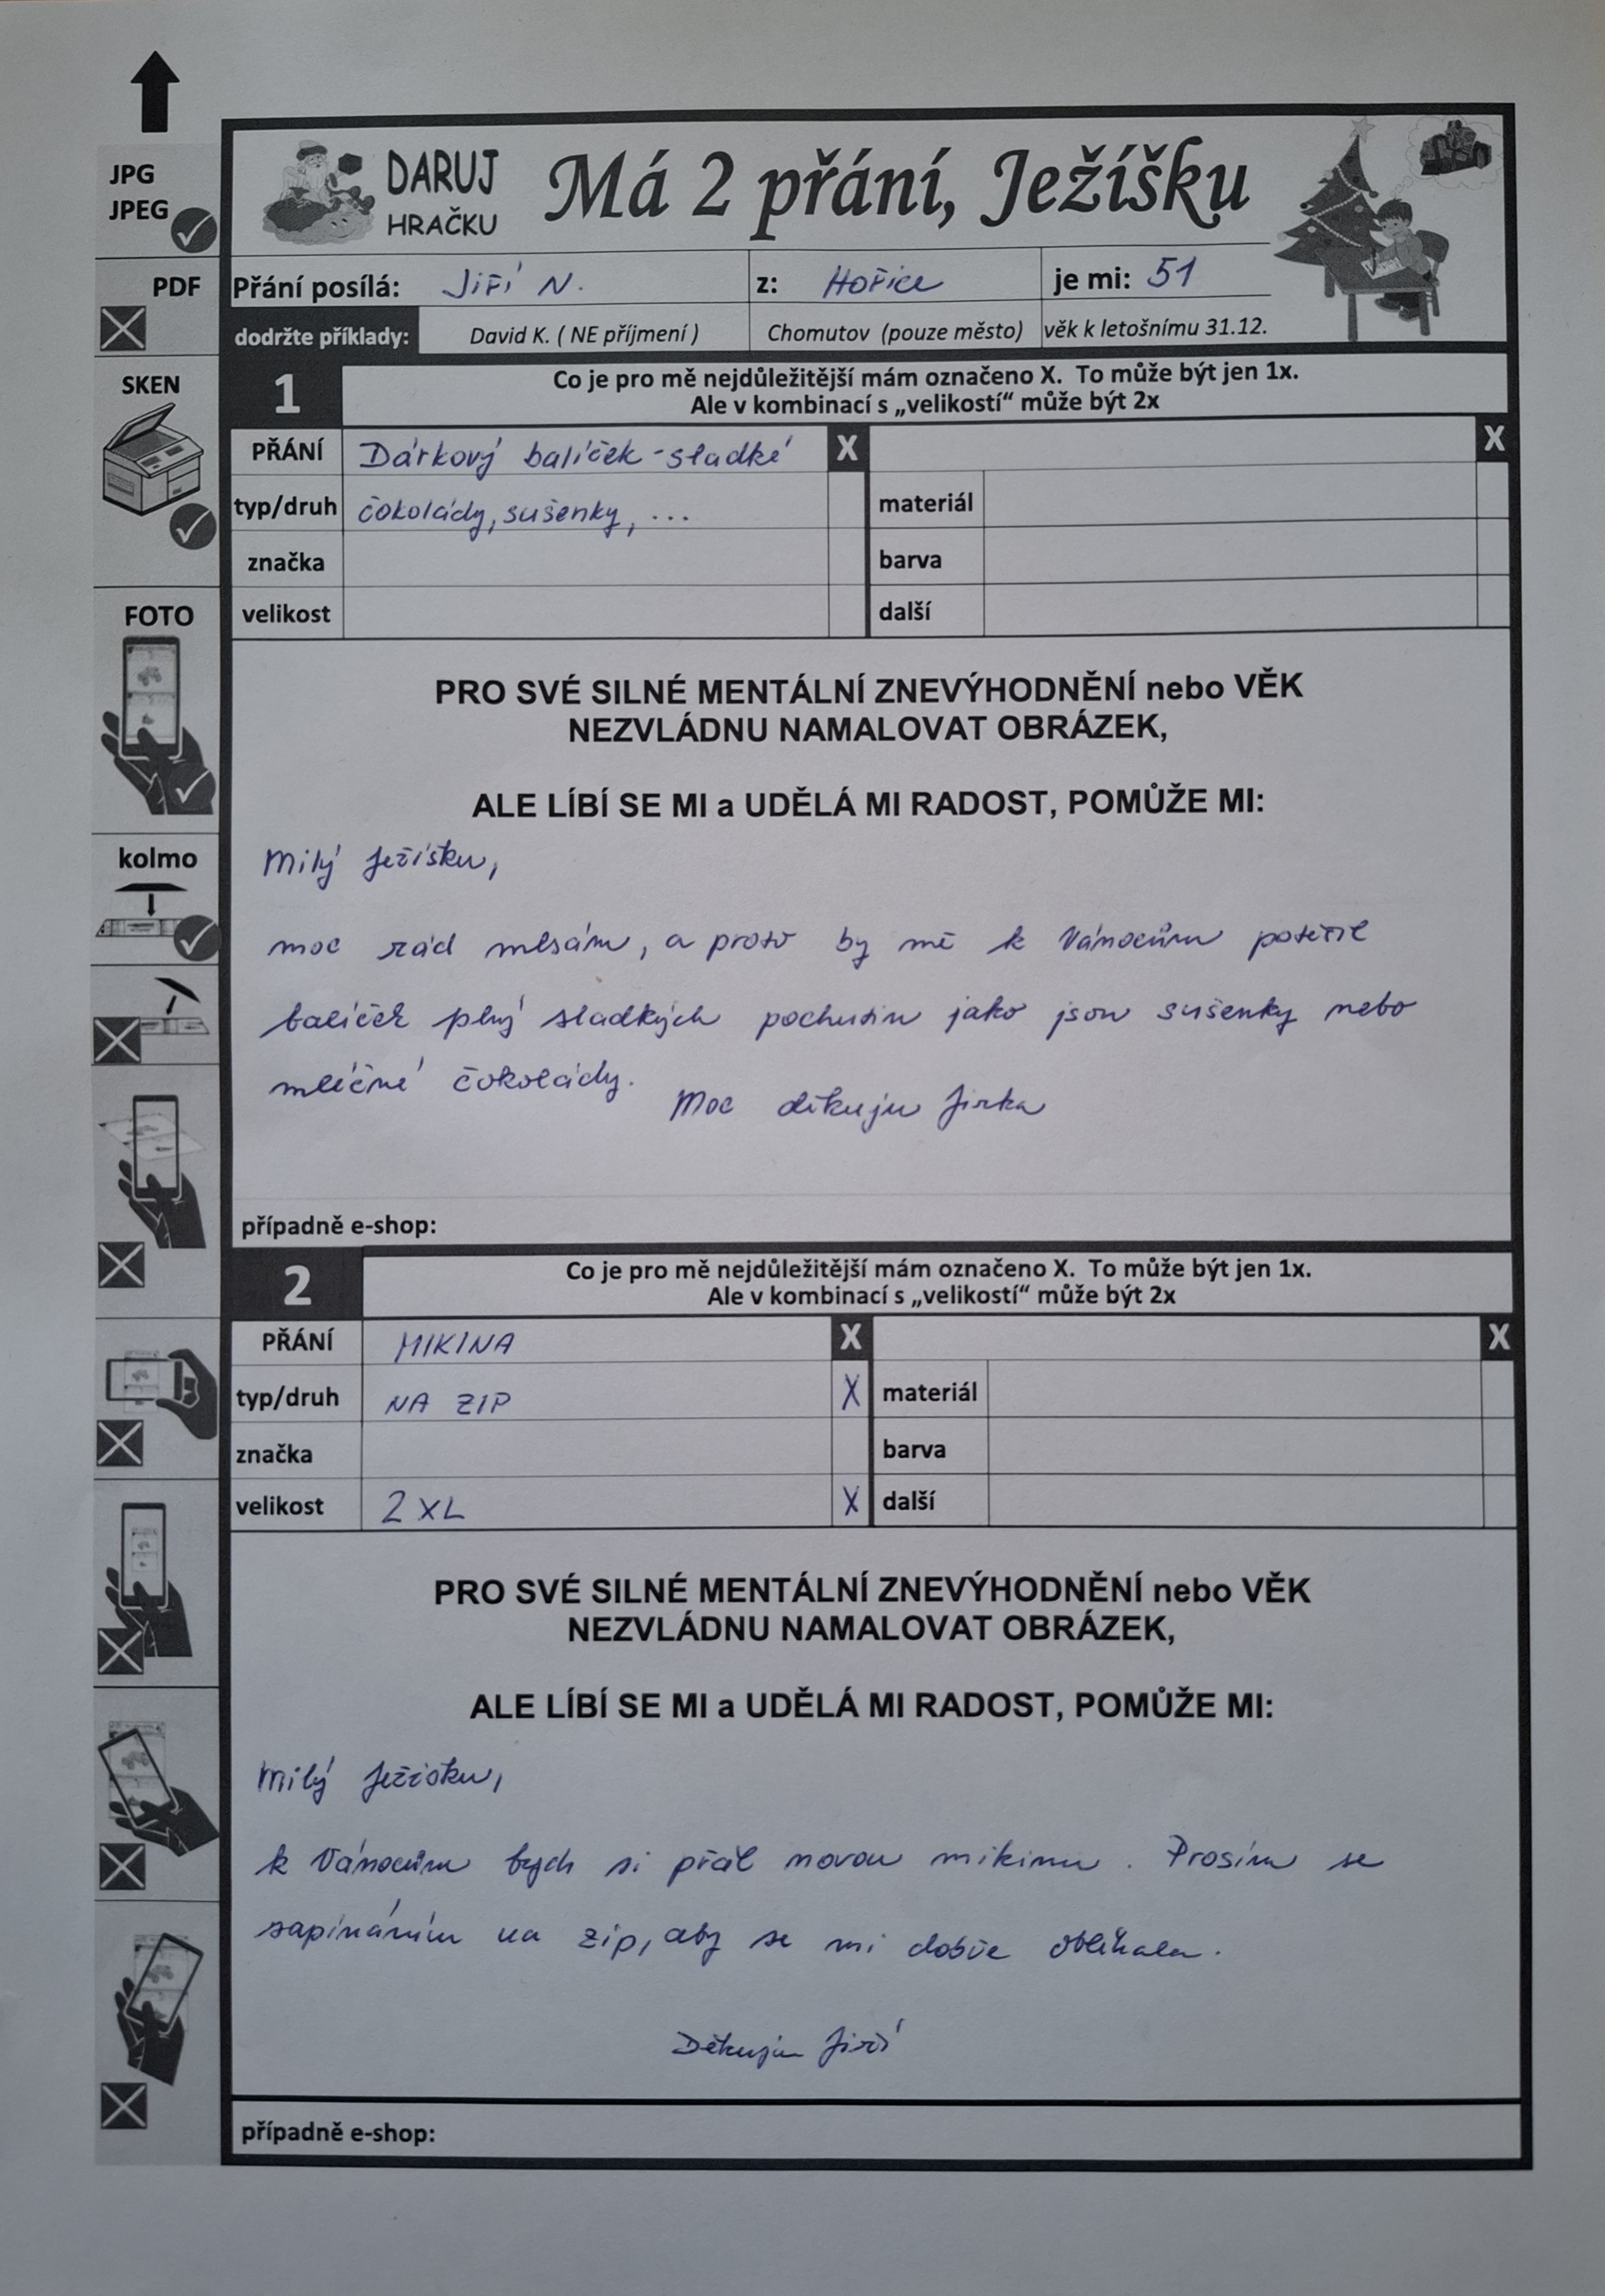 JPG
JPEG
DARUJ
HRAČKU
Má 2 přání, Ježíšku
PDF
Přání posílá: Jiří N. z: Hořice je mi: 51
dodržte příklady: David K. ( NE příjmení ) Chomutov (pouze město) věk k letošnímu 31.12.
SKEN
1
Co je pro mě nejdůležitější mám označeno X. To může být jen 1x.
Ale v kombinací s „velikostí“ může být 2x
PŘÁNÍ Dárkový balíček - sladké X X
typ/druh čokolády, sušenky, ... materiál
značka barva
velikost další
FOTO
PRO SVÉ SILNÉ MENTÁLNÍ ZNEVÝHODNĚNÍ nebo VĚK
NEZVLÁDNU NAMALOVAT OBRÁZEK,
ALE LÍBÍ SE MI a UDĚLÁ MI RADOST, POMŮŽE MI:
kolmo
Milý Ježíšku,
moc rád mlsám, a proto by mě k Vánocům potěšil
balíček plný sladkých pochutin jako jsou sušenky nebo
mléčné čokolády.
Moc děkuju Jirka
případně e-shop:
2
Co je pro mě nejdůležitější mám označeno X. To může být jen 1x.
Ale v kombinací s „velikostí“ může být 2x
PŘÁNÍ MIKINA X X
typ/druh NA ZIP X materiál
značka barva
velikost 2XL X další
PRO SVÉ SILNÉ MENTÁLNÍ ZNEVÝHODNĚNÍ nebo VĚK
NEZVLÁDNU NAMALOVAT OBRÁZEK,
ALE LÍBÍ SE MI a UDĚLÁ MI RADOST, POMŮŽE MI:
Milý Ježíšku,
k Vánocům bych si přál novou mikinu. Prosím se
zapínáním na zip, aby se mi dobře oblékala.
Děkuju Jiří
případně e-shop: